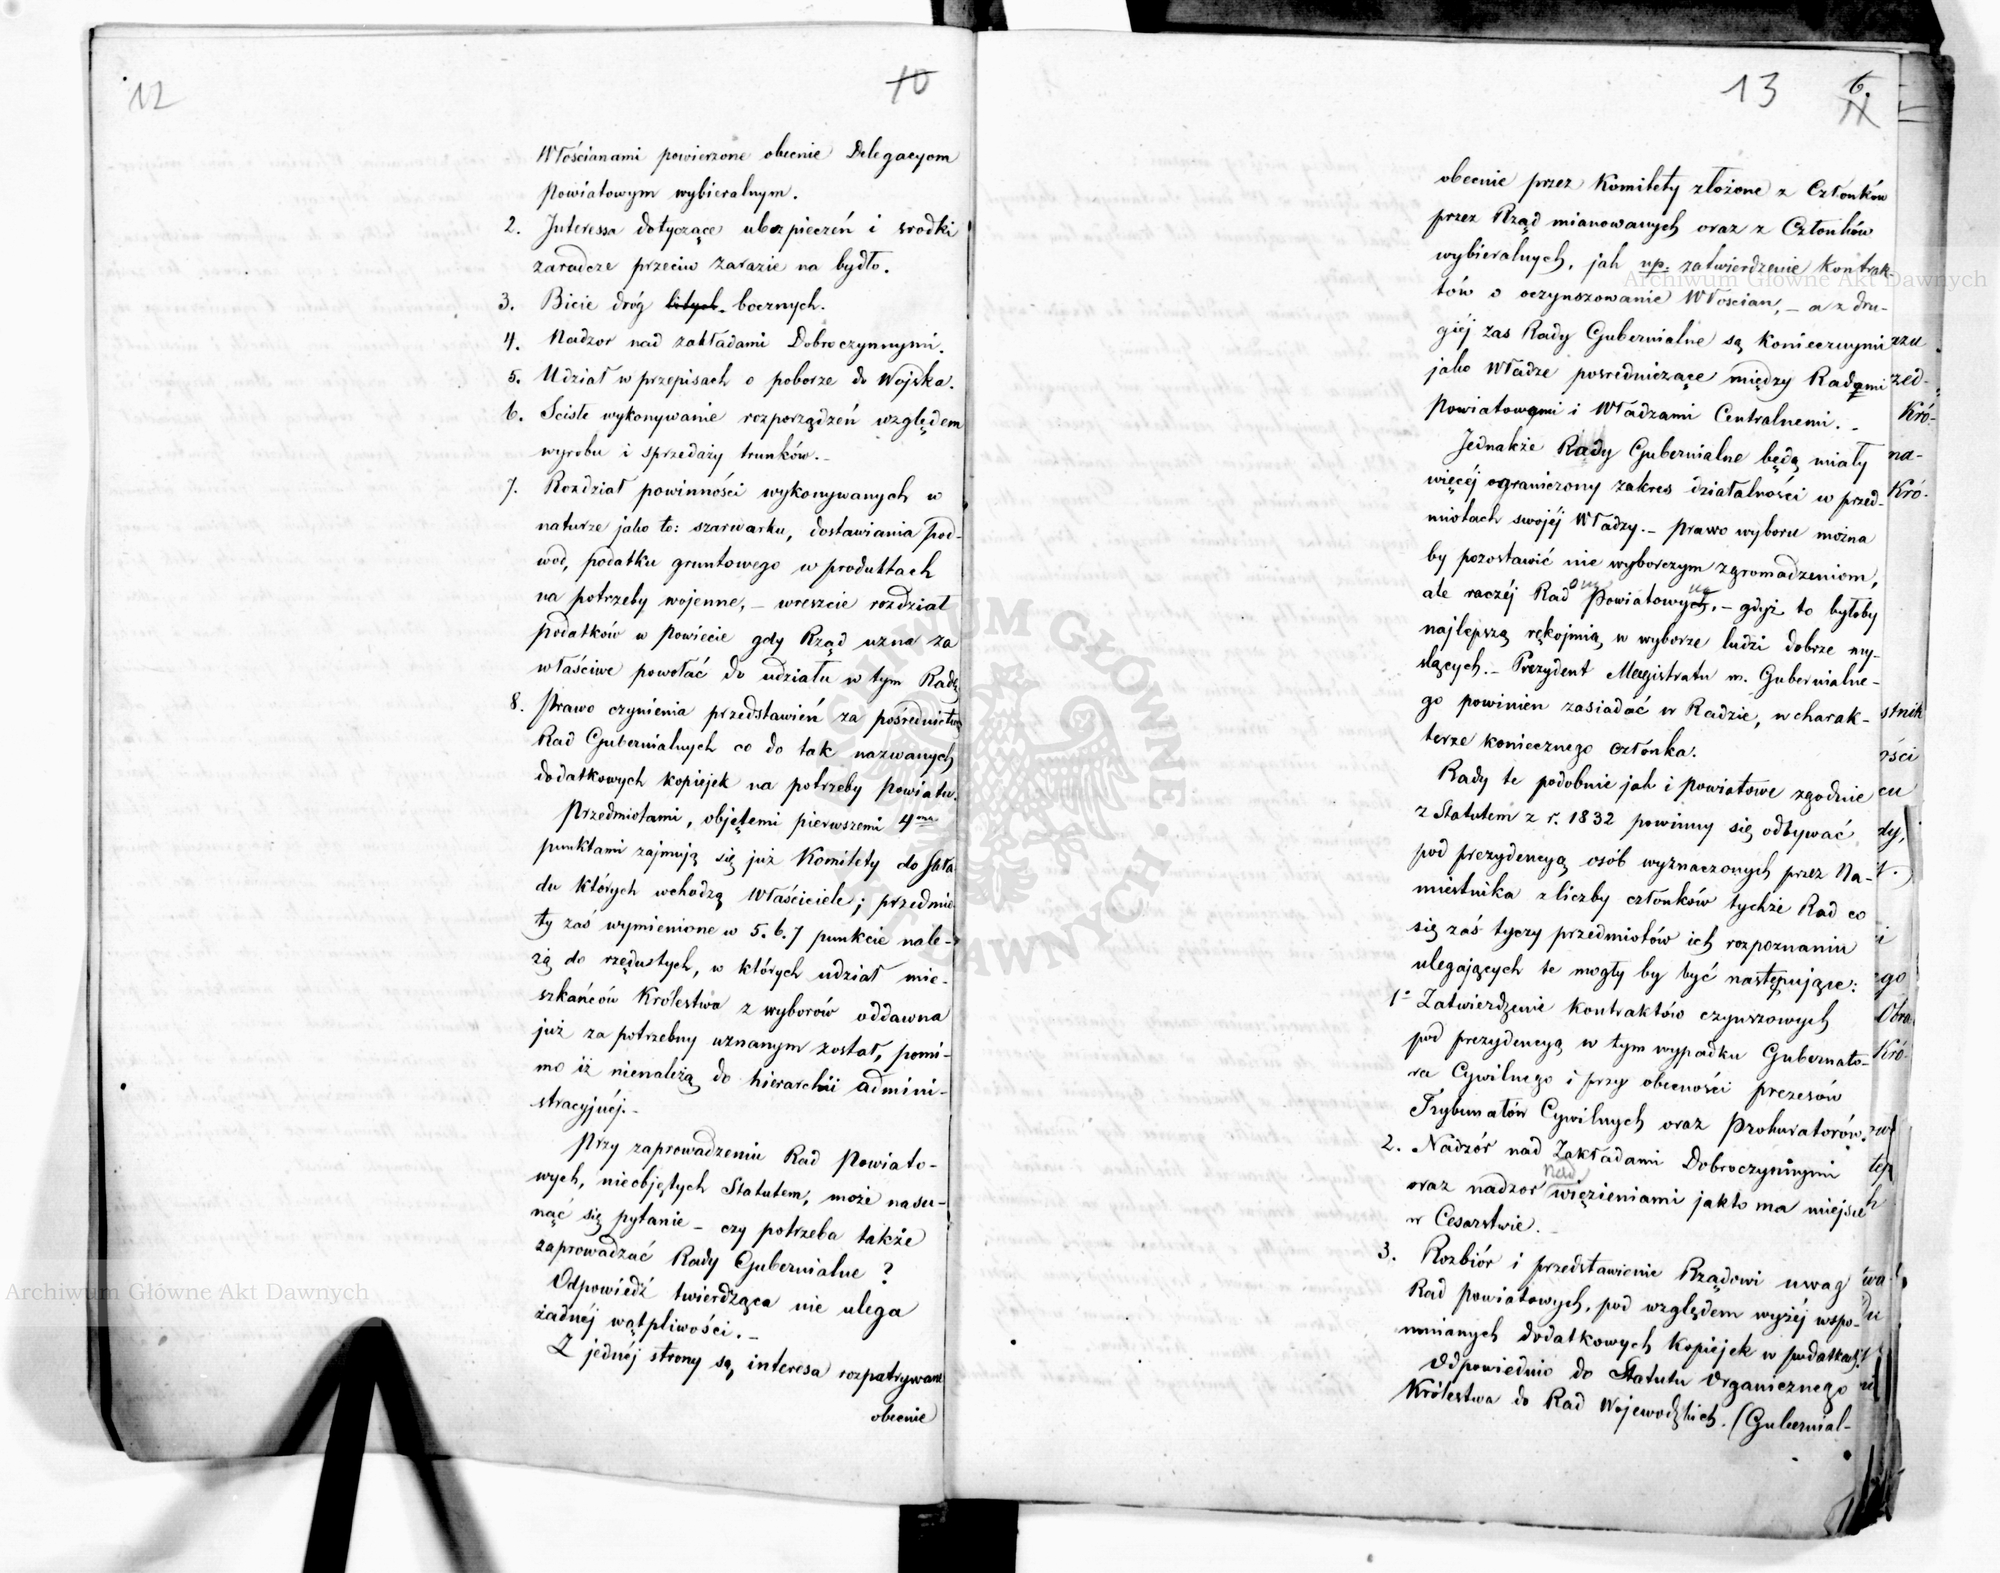 12
10
Włościanami powierzone obecnie Delegacyom
Powiatowym wybieralnym.
2. Interessa dotyczące ubezpieczeń i srodki
zaradcze przeciw zarazie na bydło.
3. Bicie dróg bitych. bocznych.
4. Nadzor nad zakładami Dobroczynnymi.
5. Udział w przepisach o poborze do Wojska.
6. Scisłe wykonywanie rozporządzeń względem
wyrobu i sprzedaży trunków.–
7. Rozdział powinności wykonywanych w
naturze jako to: szarwarku, dostawiania pod-
wod, podatku gruntowego w produktach
na potrzeby wojenne, – wreszcie rozdział
podatków w Powiecie gdy Rząd uzna za
właściwe powołać do udziału w tym Radę
8. Prawo czynienia przedstawień za pośrednictwem
Rad Gubernialnych co do tak nazwanych
dodatkowych kopiejek na potrzeby Powiatu.
Przedmiotami, objętemi pierwszemi 4ma
punktami zajmują się już Komitety do składu
du których wchodzą Właściciele; przedmio-
ty zaś wymienione w 5. 6. 7 punkcie nale-
żą do rzędu tych, w których udział mie-
szkańców Królestwa z wyborów oddawna
już za potrzebny uznanym został, pomi-
mo iż nienależą do hierarchii admini-
stracyjnéj.–
Przy zaprowadzeniu Rad Powiato-
wych, nieobjętych Statutem, może nasu-
nąć się pytanie – czy potrzeba także
zaprowadzać Rady Gubernialne ?
Odpowiedź twierdząca nie ulega
żadnéj wątpliwości. –
Z jednéj strony są, interesa rozpatrywane
obecnie
13
6.
11
obecnie przez Komitety złożone z Członków
przez Rząd mianowanych oraz z Członków
wybieralnych, jak np. zatwierdzenie Kontrak-
tów o oczynszowanie Włoscian, – a z dru-
giéj zas Rady Gubernialne są koniecznymi
jako Władze posredniczące między Radami
Powiatowymi i Władzami Centralnemi. –
Jednakże Rady Gubernialne będą miały
więcéj ograniczony zakres działalności w przed-
miotach swojéj Władzy. – Prawo wyboru można
by pozostawić nie wyborczym zgromadzeniom,
ale raczéj Rad Powiatowych, – gdyż to byłoby
najlepszą rękojmią, w wyborze ludzi dobrze my-
slących. – Prezydent Magistratu m. Gubernialne-
go powinien zasiadać w Radzie, w charak-
terze koniecznego członka.
Rady te podobnie jak i Powiatowe zgodnie
z Statutem z r. 1832 powinny się odbywać
pod prezydencyą osób wyznaczonych przez Na-
miestnika z liczby członków tychże Rad co
się zaś tyczy przedmiotów ich rozpoznaniu
ulegających te mogły by być następujące:
1– Zatwierdzenie kontraktów czynszowych
pod prezydencyą w tym wypadku Gubernato-
ra Cywilnego i przy obecności prezesów
Trybunałów Cywilnych oraz Prokuratorów.
2. Nadzór nad Zakładami Dobroczynnymi
nad
oraz nadzor więzieniami jak to ma miejsce
w Cesarstwie. –
3. Rozbiór i przedstawienie Rządowi uwag
Rad Powiatowych, pod względem wyżéj wspo-
mnianych dodatkowych Kopiejek w podatkach
Odpowiednio do Statutu Organicznego
Królestwa do Rad Wojewodzkich. (Gubernial-
Archiwum Główne Akt Dawnych
Archiwum Główne Akt Dawnych
ARCHIWUM GŁÓWNE AKT DAWNYCH